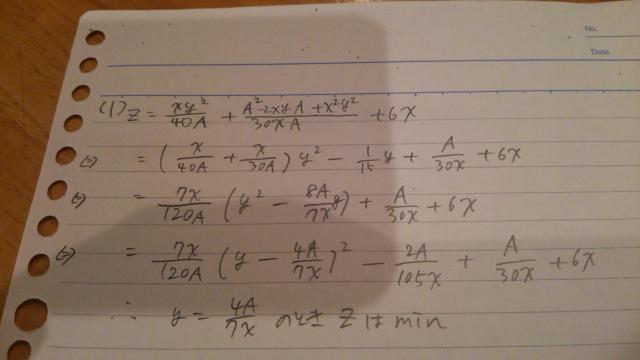 No.
Date
(1) z = xy²/40A + (A² - 2xyA + x²y²)/30xA + 6x
⇔ = (x/40A + x/30A) y² - 1/15 y + A/30x + 6x
⇔ = 7x/120A (y² - 8A/7x y) + A/30x + 6x
⇔ = 7x/120A (y - 4A/7x)² - 2A/105x + A/30x + 6x
∴ y = 4A/7x のとき z は min